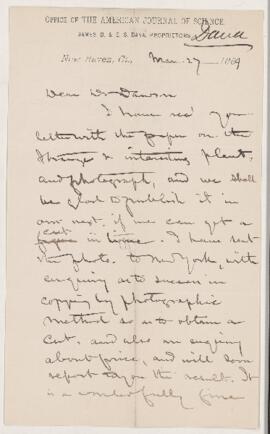 OFFICE OF THE AMERICAN JOURNAL OF SCIENCE.
JAMES D. & E. S. DANA, PROPRIETORS.
Dana
New Haven, Ct., Mar. 27 1889
Dear Dr Dawson
I have rec'd your
letter with the paper on the
strange & interesting plant,
and photograph, and we shall
be glad to publish it in
our next, if we can get a
cut in time. I have sent
the photo. to New York, with
enquiry as to success in
copying by photographic
method so as to obtain a
cut, and also an enquiry
about price, and will soon
report to you the result. It
is a wonderfully fine